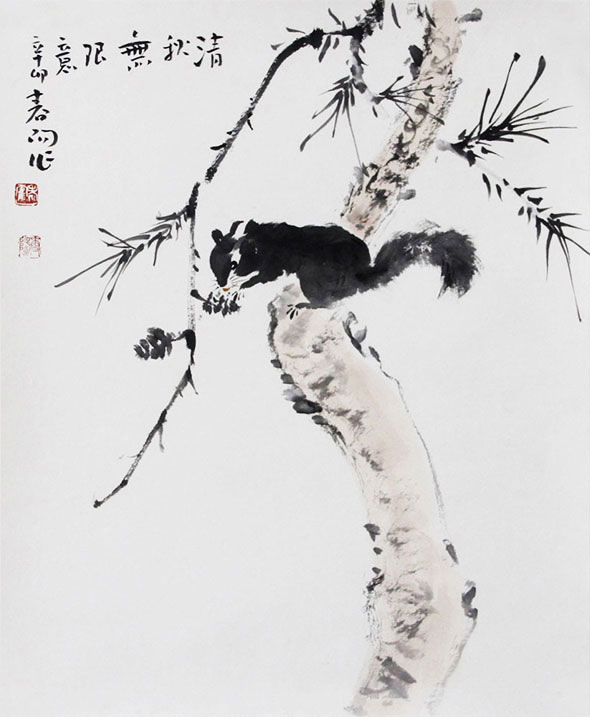 清秋無限意
辛卯春作